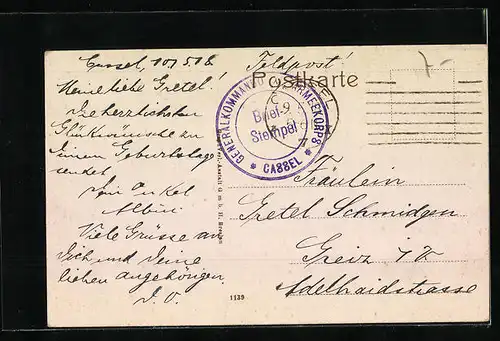 Cassel, 10/5.18
Feldpost!
Meine liebe Gretel!
Die herzlichsten
Glückwünsche zu
Deinem Geburtstage
sendet
Dein Onkel
Albin
Viele Grüsse an
Dich und Deine
lieben Angehörigen.
D. O.
Postkarte
GENERALKOMMANDO ARMEEKORPS
Brief-
Stempel
* CASSEL *
Fräulein
Gretel Schmidgen
Greiz i/V.
Adelhaidstrasse
1139